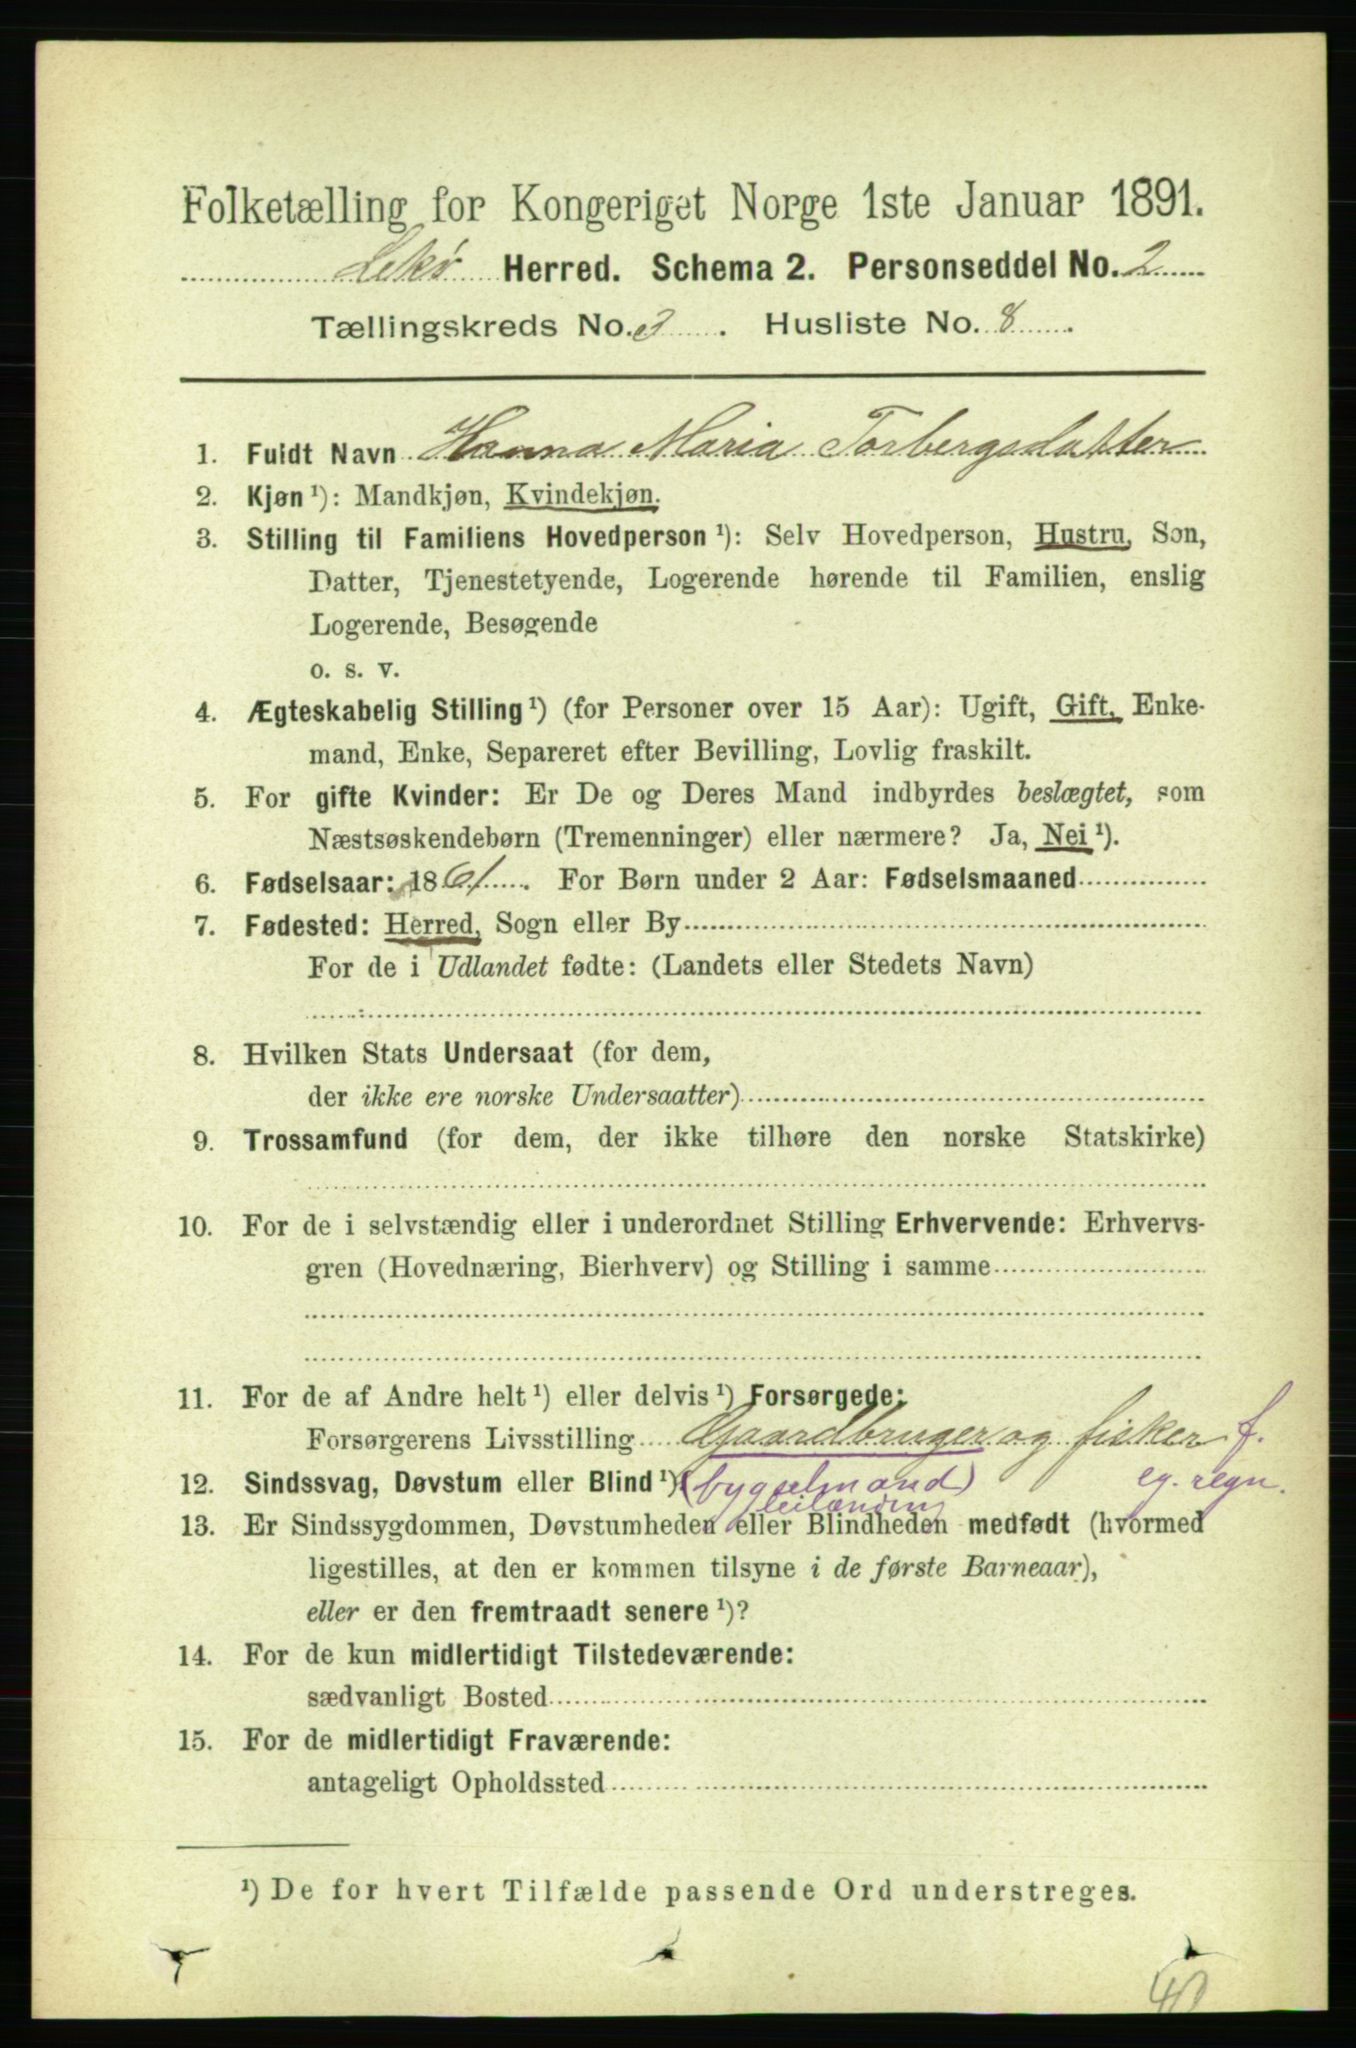 Folketælling for Kongeriget Norge 1ste Januar 1891.
Lekø Herred. Schema 2. Personseddel No. 2
Tællingskreds No. 3. Husliste No. 8.
1. Fuldt Navn Hanna Maria Torbergsdatter
2. Kjøn ¹): Mandkjøn, Kvindekjøn.
3. Stilling til Familiens Hovedperson ¹): Selv Hovedperson, Hustru, Søn,
Datter, Tjenestetyende, Logerende hørende til Familien, enslig
Logerende, Besøgende
o. s. v.
4. Ægteskabelig Stilling ¹) (for Personer over 15 Aar): Ugift, Gift, Enke-
mand, Enke, Separeret efter Bevilling, Lovlig fraskilt.
5. For gifte Kvinder: Er De og Deres Mand indbyrdes beslægtet, som
Næstsøskendebørn (Tremenninger) eller nærmere? Ja, Nei ¹).
6. Fødselsaar: 1861. For Børn under 2 Aar: Fødselsmaaned
7. Fødested: Herred, Sogn eller By
For de i Udlandet fødte: (Landets eller Stedets Navn)
8. Hvilken Stats Undersaat (for dem,
der ikke ere norske Undersaatter)
9. Trossamfund (for dem, der ikke tilhøre den norske Statskirke)
10. For de i selvstændig eller i underordnet Stilling Erhvervende: Erhvervs-
gren (Hovednæring, Bierhverv) og Stilling i samme
11. For de af Andre helt ¹) eller delvis ¹) Forsørgede:
Forsørgerens Livsstilling Gaardbruger og fisker f.
12. Sindssvag, Døvstum eller Blind ¹) (bygselmand) eg. regn.
leilænding
13. Er Sindssygdommen, Døvstumheden eller Blindheden medfødt (hvormed
ligestilles, at den er kommen tilsyne i de første Barneaar),
eller er den fremtraadt senere ¹)?
14. For de kun midlertidigt Tilstedeværende:
sædvanligt Bosted
15. For de midlertidigt Fraværende:
antageligt Opholdssted
¹) De for hvert Tilfælde passende Ord understreges.